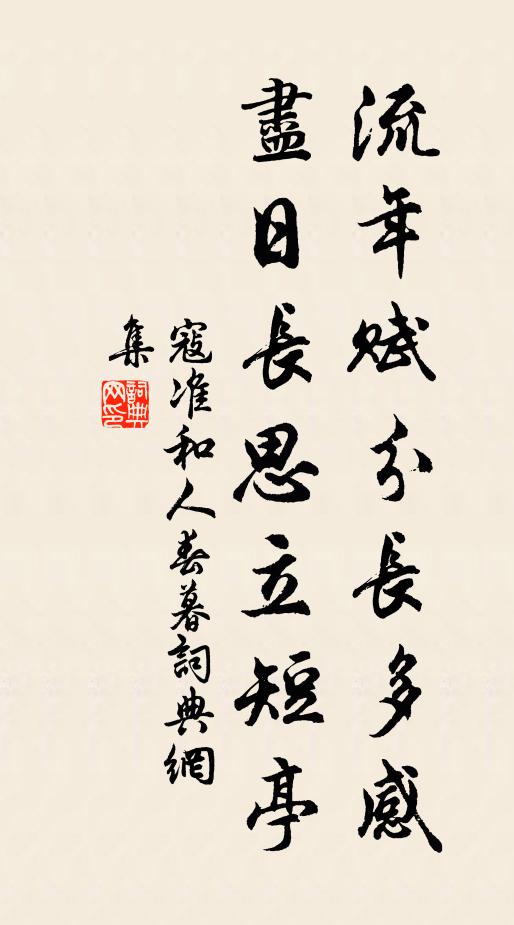 流年賦分長多感
盡日長思立短亭
寇准和人春暮詞典網
集
詞典網印